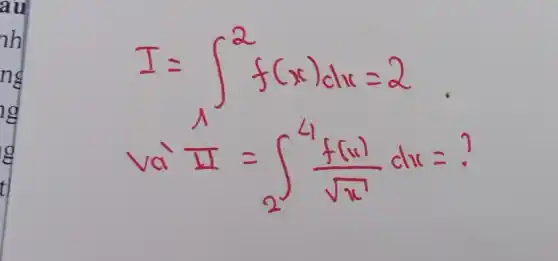 au
nh
ng
ng
g
t
I = ∫₁² f(x)dx = 2 .
và II = ∫₂⁴ f(x)/√x dx = ?